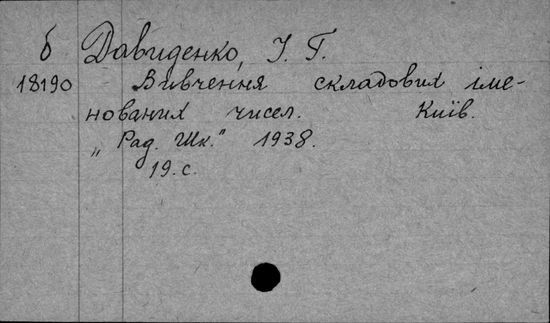 б Давиденко, І. Г.
18190 Вивчення складових іме-
нованих чисел. Київ.
„Рад. Шк." 1938.
19. с.